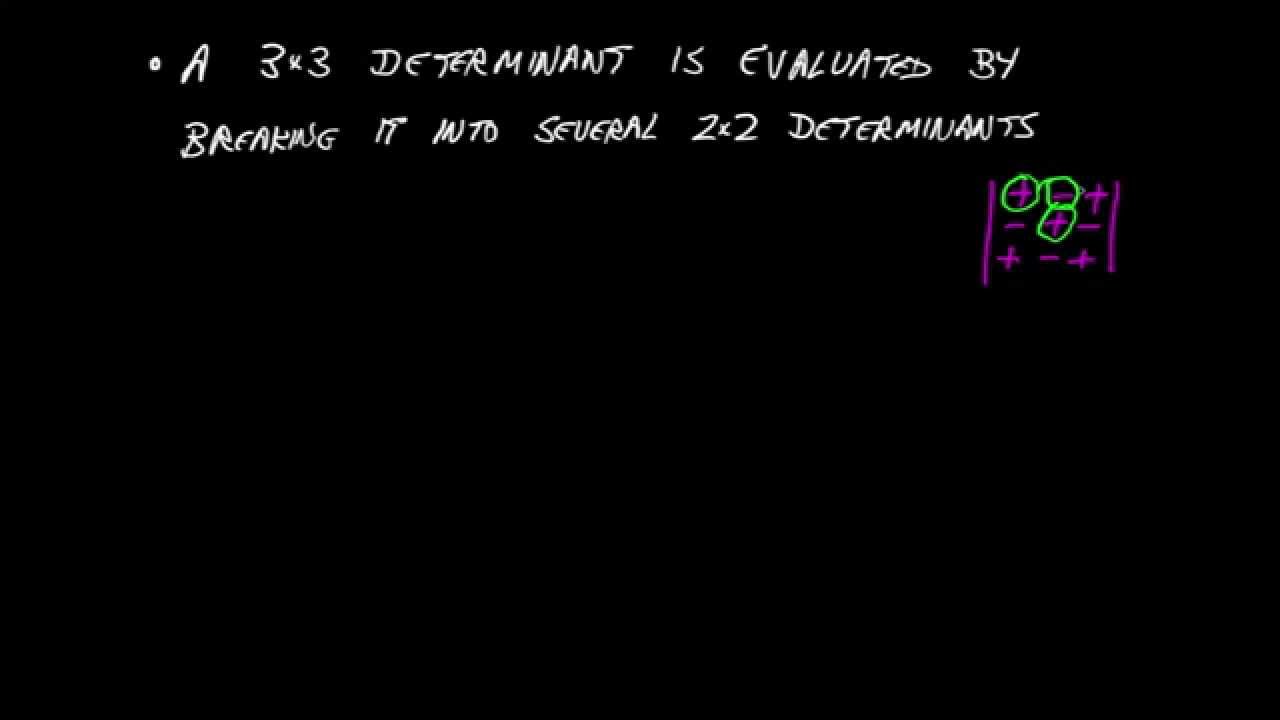 • A 3×3 DETERMINANT IS EVALUATED BY
BREAKING IT INTO SEVERAL 2×2 DETERMINANTS
| + - + |
| - + - |
| + - + |